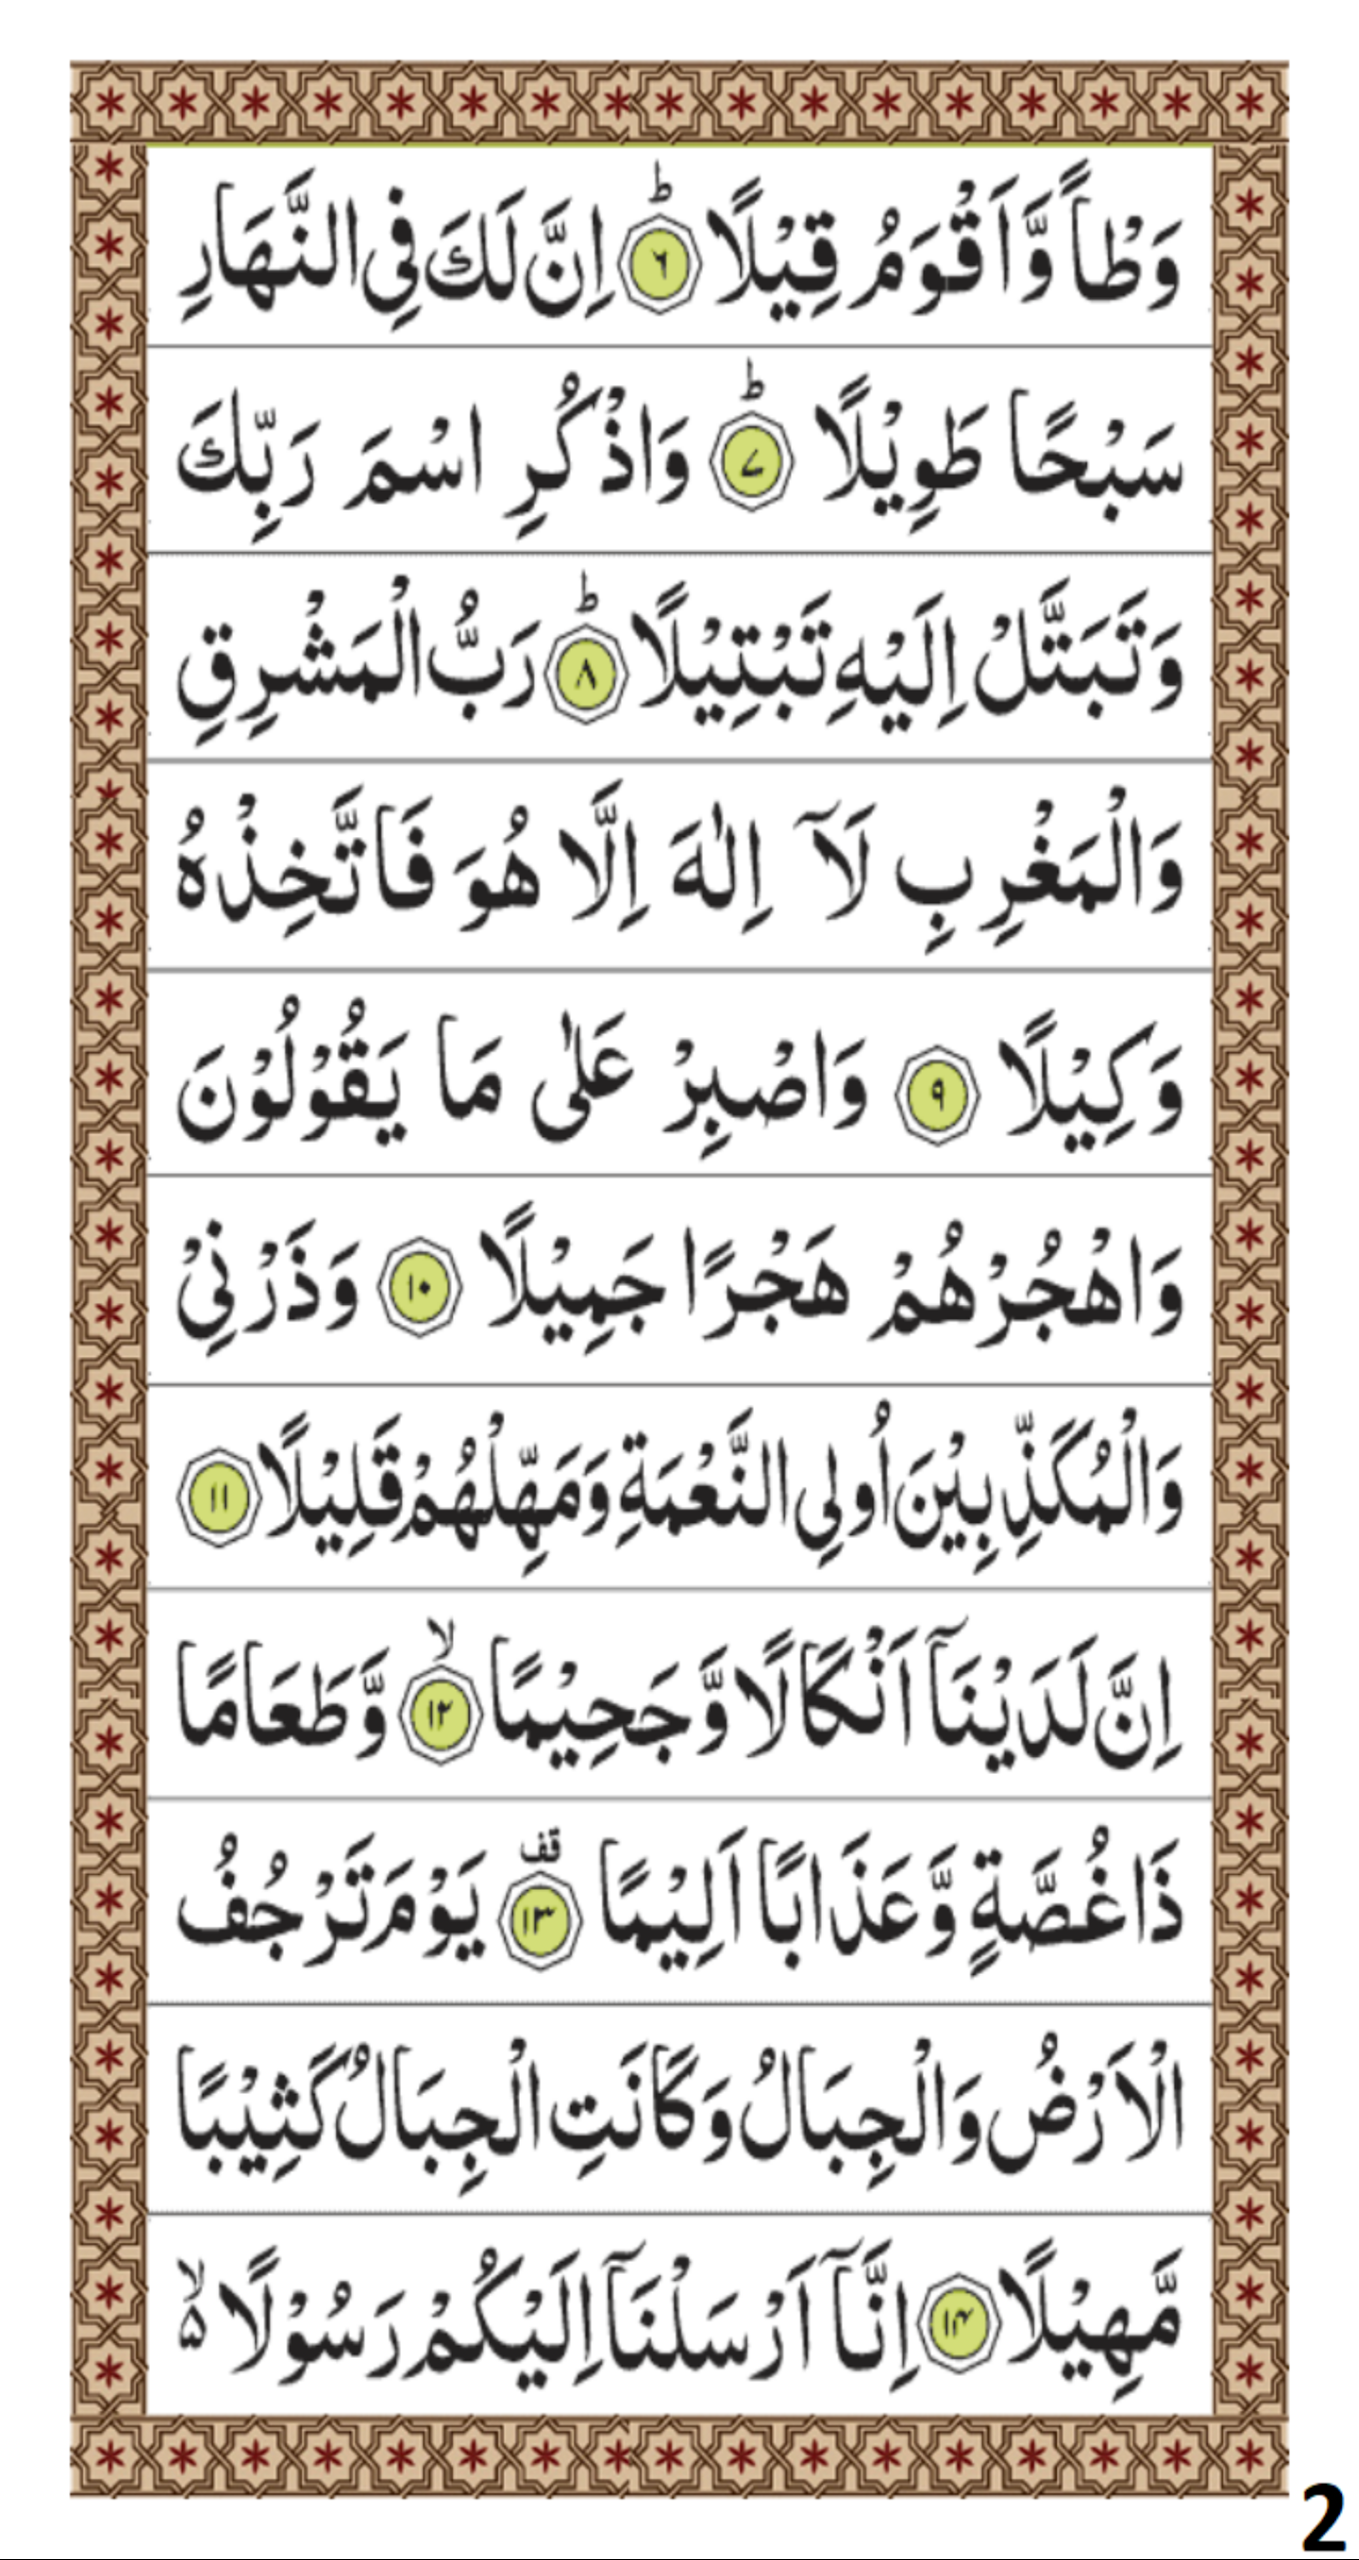 وَطْاً وَّاَقْوَمُ قِيْلًا ؕ ﴿۶﴾ اِنَّ لَكَ فِى النَّهَارِ
سَبْحًا طَوِيْلًا ؕ ﴿۷﴾ وَاذْكُرِ اسْمَ رَبِّكَ
وَتَبَتَّلْ اِلَيْهِ تَبْتِيْلًا ؕ ﴿۸﴾ رَبُّ الْمَشْرِقِ
وَالْمَغْرِبِ لَاۤ اِلٰهَ اِلَّا هُوَ فَاتَّخِذْهُ
وَكِيْلًا ﴿۹﴾ وَاصْبِرْ عَلٰى مَا يَقُوْلُوْنَ
وَاهْجُرْهُمْ هَجْرًا جَمِيْلًا ﴿۱۰﴾ وَذَرْنِىْ
وَالْمُكَذِّبِيْنَ اُولِى النَّعْمَةِ وَمَهِّلْهُمْ قَلِيْلًا ﴿۱۱﴾
اِنَّ لَدَيْنَاۤ اَنْكَالًا وَّجَحِيْمًا ۙ ﴿۱۲﴾ وَّطَعَامًا
ذَا غُصَّةٍ وَّعَذَابًا اَلِيْمًا قف ﴿۱۳﴾ يَوْمَ تَرْجُفُ
الْاَرْضُ وَالْجِبَالُ وَكَانَتِ الْجِبَالُ كَثِيْبًا
مَّهِيْلًا ﴿۱۴﴾ اِنَّاۤ اَرْسَلْنَاۤ اِلَيْكُمْ رَسُوْلًا ۵ۙ
2